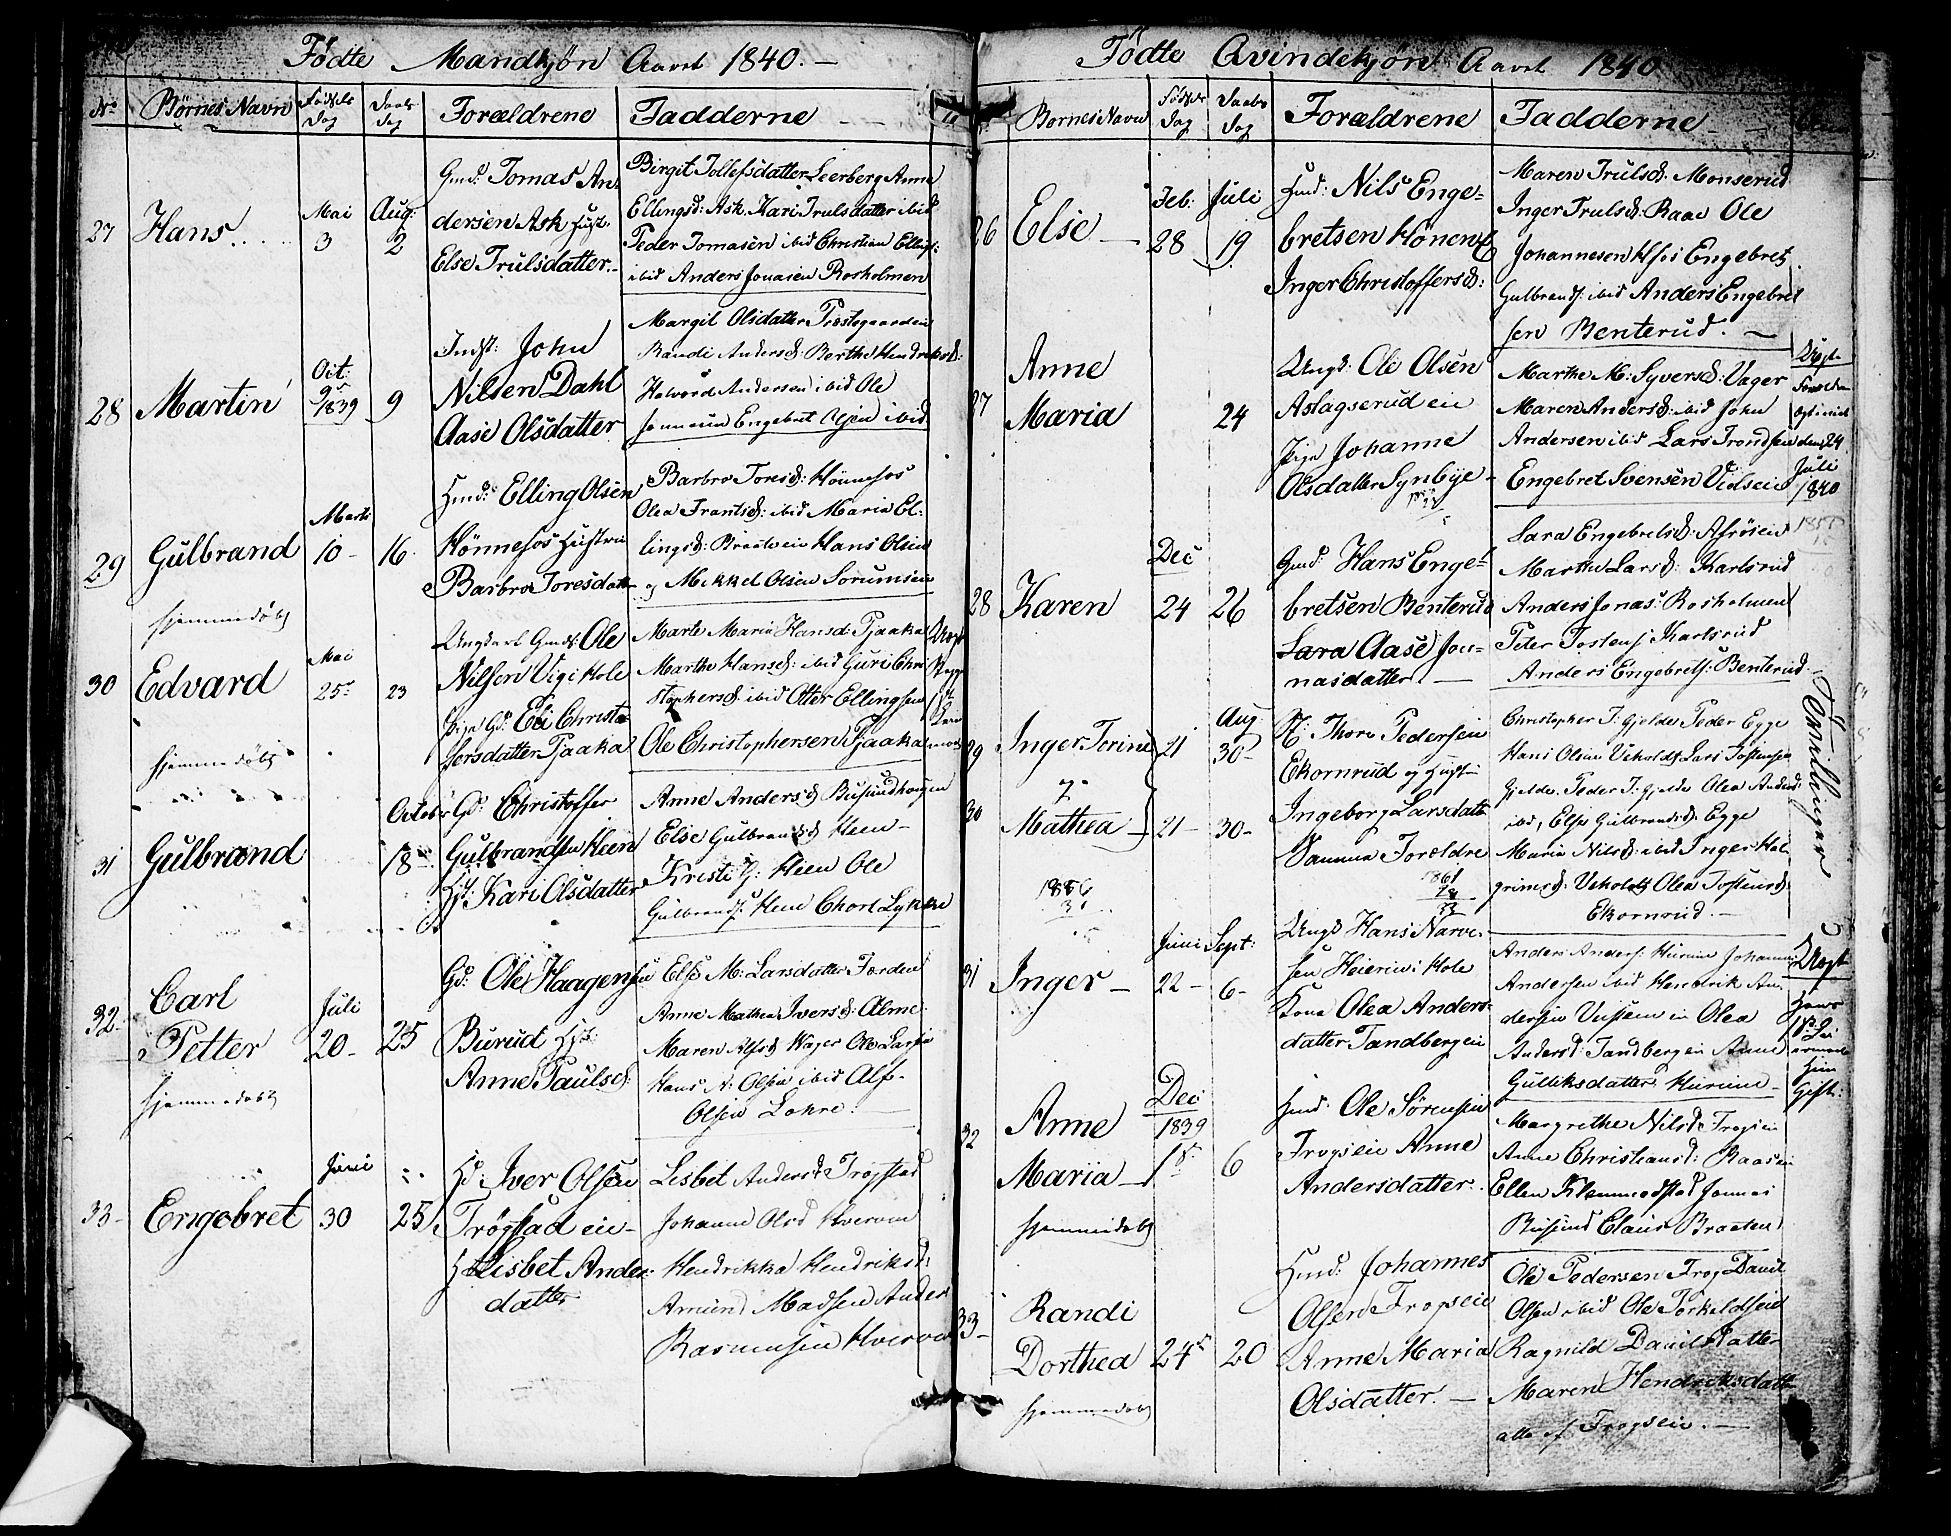 Födte Mandkjøn Aaret 1840.
No
Børnes Navn
Fødsels Dag
Daabs Dag
Forældrene
Fadderne
27
Hans
Mai 3
Aug: 2
Gmd: Tomas An-
dersen Ask Hust.
Else Trulsdatter.
Birgit Tollefsdatter Leerberg Anne
Ellingsd: Ask. Kari Trulsdatter ibid
Peder Tomasen ibid Christian Ellings:
ibid Anders Jonasen Rosholmen
28
Martin
Oct. 9 1839
9
Indst: John
Nilsen Dahl
Aase Olsdatter
Margit Olsdatter Præstegaarden
Randi Andersd: Berthe Hendriksd:
Halvord Andersen ibid Ole
Engebret ibid
29
Gulbrand
hjemmedøbt
Marts 10
16
Hmd: Elling Olsen
Hönnefos Hustru
Barbro Toresdatter
Barbro Toresd: Hönnefos
Olea Frantsd: ibid Maria El-
lingsd: Braatveie Hans Olsen
og Mikkel Olsen Sorumseie
30
Edvard
hjemmedøbt
Mai 25
23
Ungkarl Gmds: Ole
Nilsen Vigi Hole
Pige Gd: Eli Christo-
fersdatter Pjaaka
Marte Maria Hansd: Pjaaka
Marthe Hansd: ibid Guri Chri-
stophersd: ibid Otter Ellingsen
Ole Christophersen Pjaaka
31
Gulbrand
October 18
Gd: Christoffer
Gulbrandsen Heen
Hst: Kari Olsdatter
Anne Andersd Busundhougen
Else Gulbrandsd Heen
Kristi G: Heen Ole
Gulbrands: Heen Lykke
32
Carl
Petter
hjemmedøbt
Juli 20
25
Gd: Ole Haagensen
Burud Hst:
Anne Paulsd:
Else M: Larsdatter Færden
Anne Mathea Iversd: Alme
Maren Alfsd Vager Ole Larsen
Hans A: Olsen ibid Alf
Olsen Lohre
33
Engebret
Juni 30
25
Hd: Iver Olsen
Trögstad eie
H Lisbet Anders
datter
Lisbet Andersd: Trogstad
Johanne Olsd Hverven
Hendrikka Hendriksd:
Amund Madsen Anders
Rasmussen Hverven
Födte Qvindekjøn Aaret 1840
Børnes Navn
Fødsels Dag
Daabs Dag
Forældrene
Fadderne
26
Else
Feb: 28
Juli 19
Hmd: Nils Enge-
bretsen Hönen
Inger Christoffersd:
Maren Trulsd: Monserud
Inger Trulsd: Raae Ole
Johannesen Hfos Engebret
Gulbrands: ibid Anders Engebret
sen Benterud.
27
Anne
Maria
24
Ungd: Ole Olsen
Aslagserud eie
Pige Johanne
Olsdatter Synbye
Marthe M: Syversd: Vager
Maren Andersd: ibid John
Andersen ibid Lars Trondsen
Engebret Svensen Veiseie
den 24
Juli
1840
28
Karen
Dec 24
26
Gmd: Hans Enge-
bretsen Benterud
Aase Jon-
nasdatter
Sara Engebretsd:
Marthe Larsd: Karlsrud
Anders Jonas: Rosholmen
Peter Tostens: Karlsrud
Anders Engebrets: Benterud
29
Inger Torine
21
Aug. 30
Thore Pedersen
Ekornrud og Hust
Ingeborg Larsdatter
30
Mathea
21
30
Samme Forældre
Tvillinger
Christopher T: Gjelde Peder Egge
Hans Olsen Veholdt Lars Tostensen
Gjelde. Peder T: Gjelde Olea Andersd:
ibid, Else Gulbrandsd: Egge
Maria Nilsd: ibid Inger Hal-
grimsd: Veholdt Olea Tostensd:
Ekornrud.
31
Inger
Juni 22
Sept: 6
Ungd Hans Narve-
sen Hole
Kone Olea Anders-
datter Tandbergeie
Anders Anders: Hurum Johannes
Andersen ibid Hendrik An-
dersen Olea
Andersd: Tandbergeie Anne
Gulliksdatter Hurum
32
Anne
Maria
hjemmedøbt
Dec 1839
15
6
Hmd: Ole Sörensen
Frogseie Anne
Andersdatter.
Margrethe Nilsd: Frogseie
Anne Christiansd: Raaseie
Ellen Klemmedstad Jonas
Busund Claus Braaten
33
Randi
Dorthea
hjemmedøbt
24
20
Hmd: Johannes
Olsen Frogseie
Anne Maria
Olsdatter.
Ole Pedersen Frog David
Olsen ibid Ole Torkildseie
Ragnild Davidsdatter
Maren Hendriksdatter
alle af Frogseie.